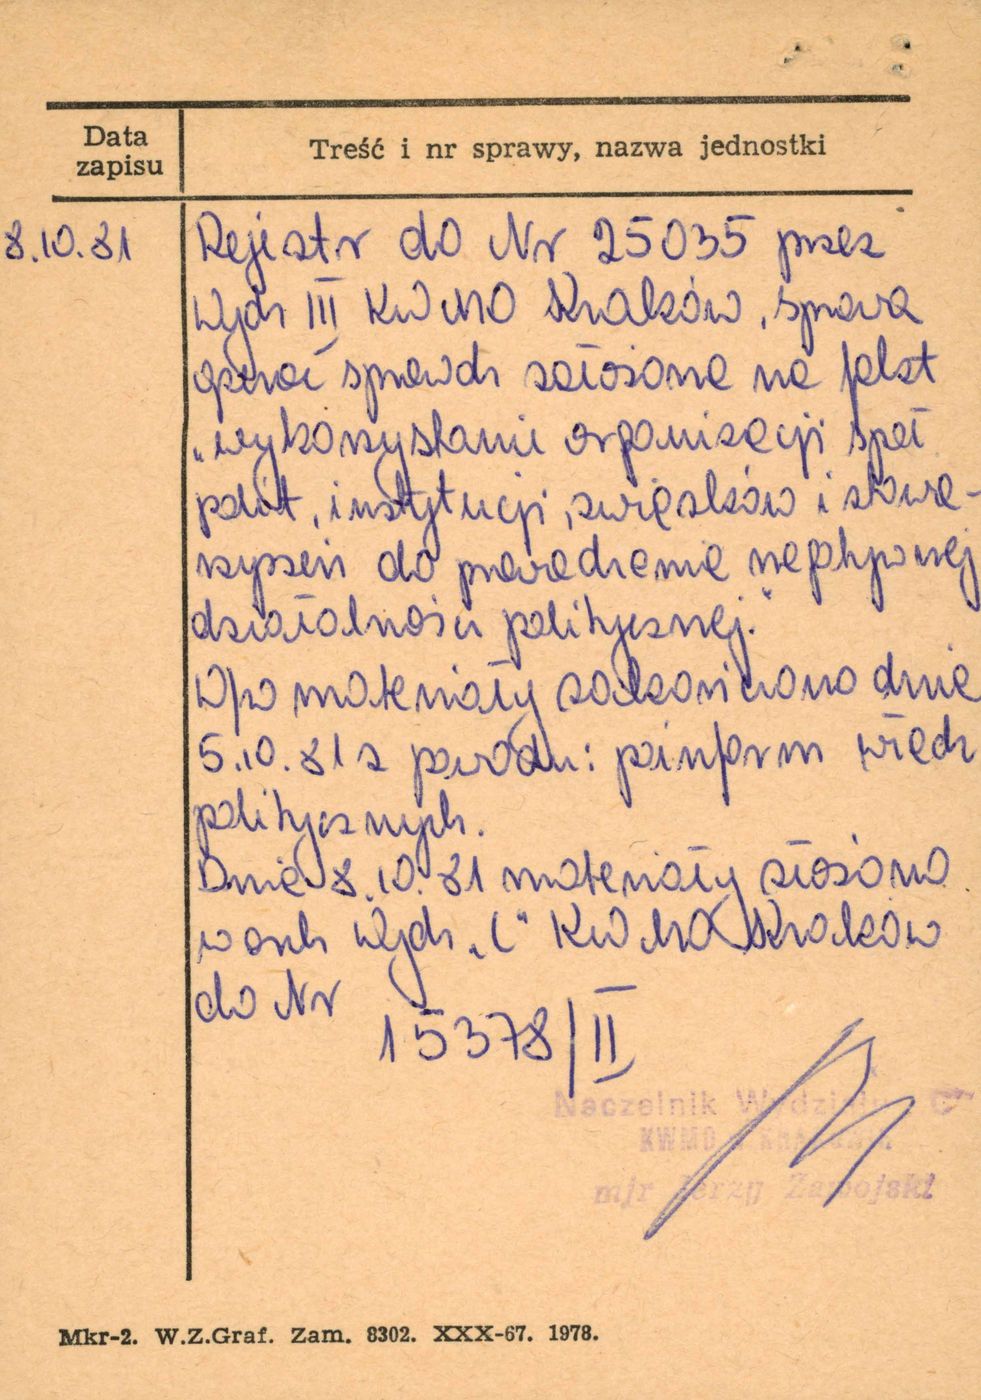 Data
zapisu
Treść i nr sprawy, nazwa jednostki
8.10.81
Rejestr do Nr 25035 przez
Wydz III KWMO Kraków, sprawa
operac sprawdz założona na fakt
„wykorzystanie organizacji społ
polit, instytucji, związków i stowa-
rzyszeń do prowadzenia negatywnej
działalności politycznej."
W/w materiały zakończono dnia
5.10.81 z powodu: poinform władz
politycznych.
Dnia 8.10.81 materiały złożono
w arch Wydz „C" KWMO Kraków
do Nr
15378/II
Naczelnik Wydziału C
KWMO w Krakowie
mjr Jerzy Zawojski
Mkr-2. W.Z.Graf. Zam. 8302. XXX-67. 1978.